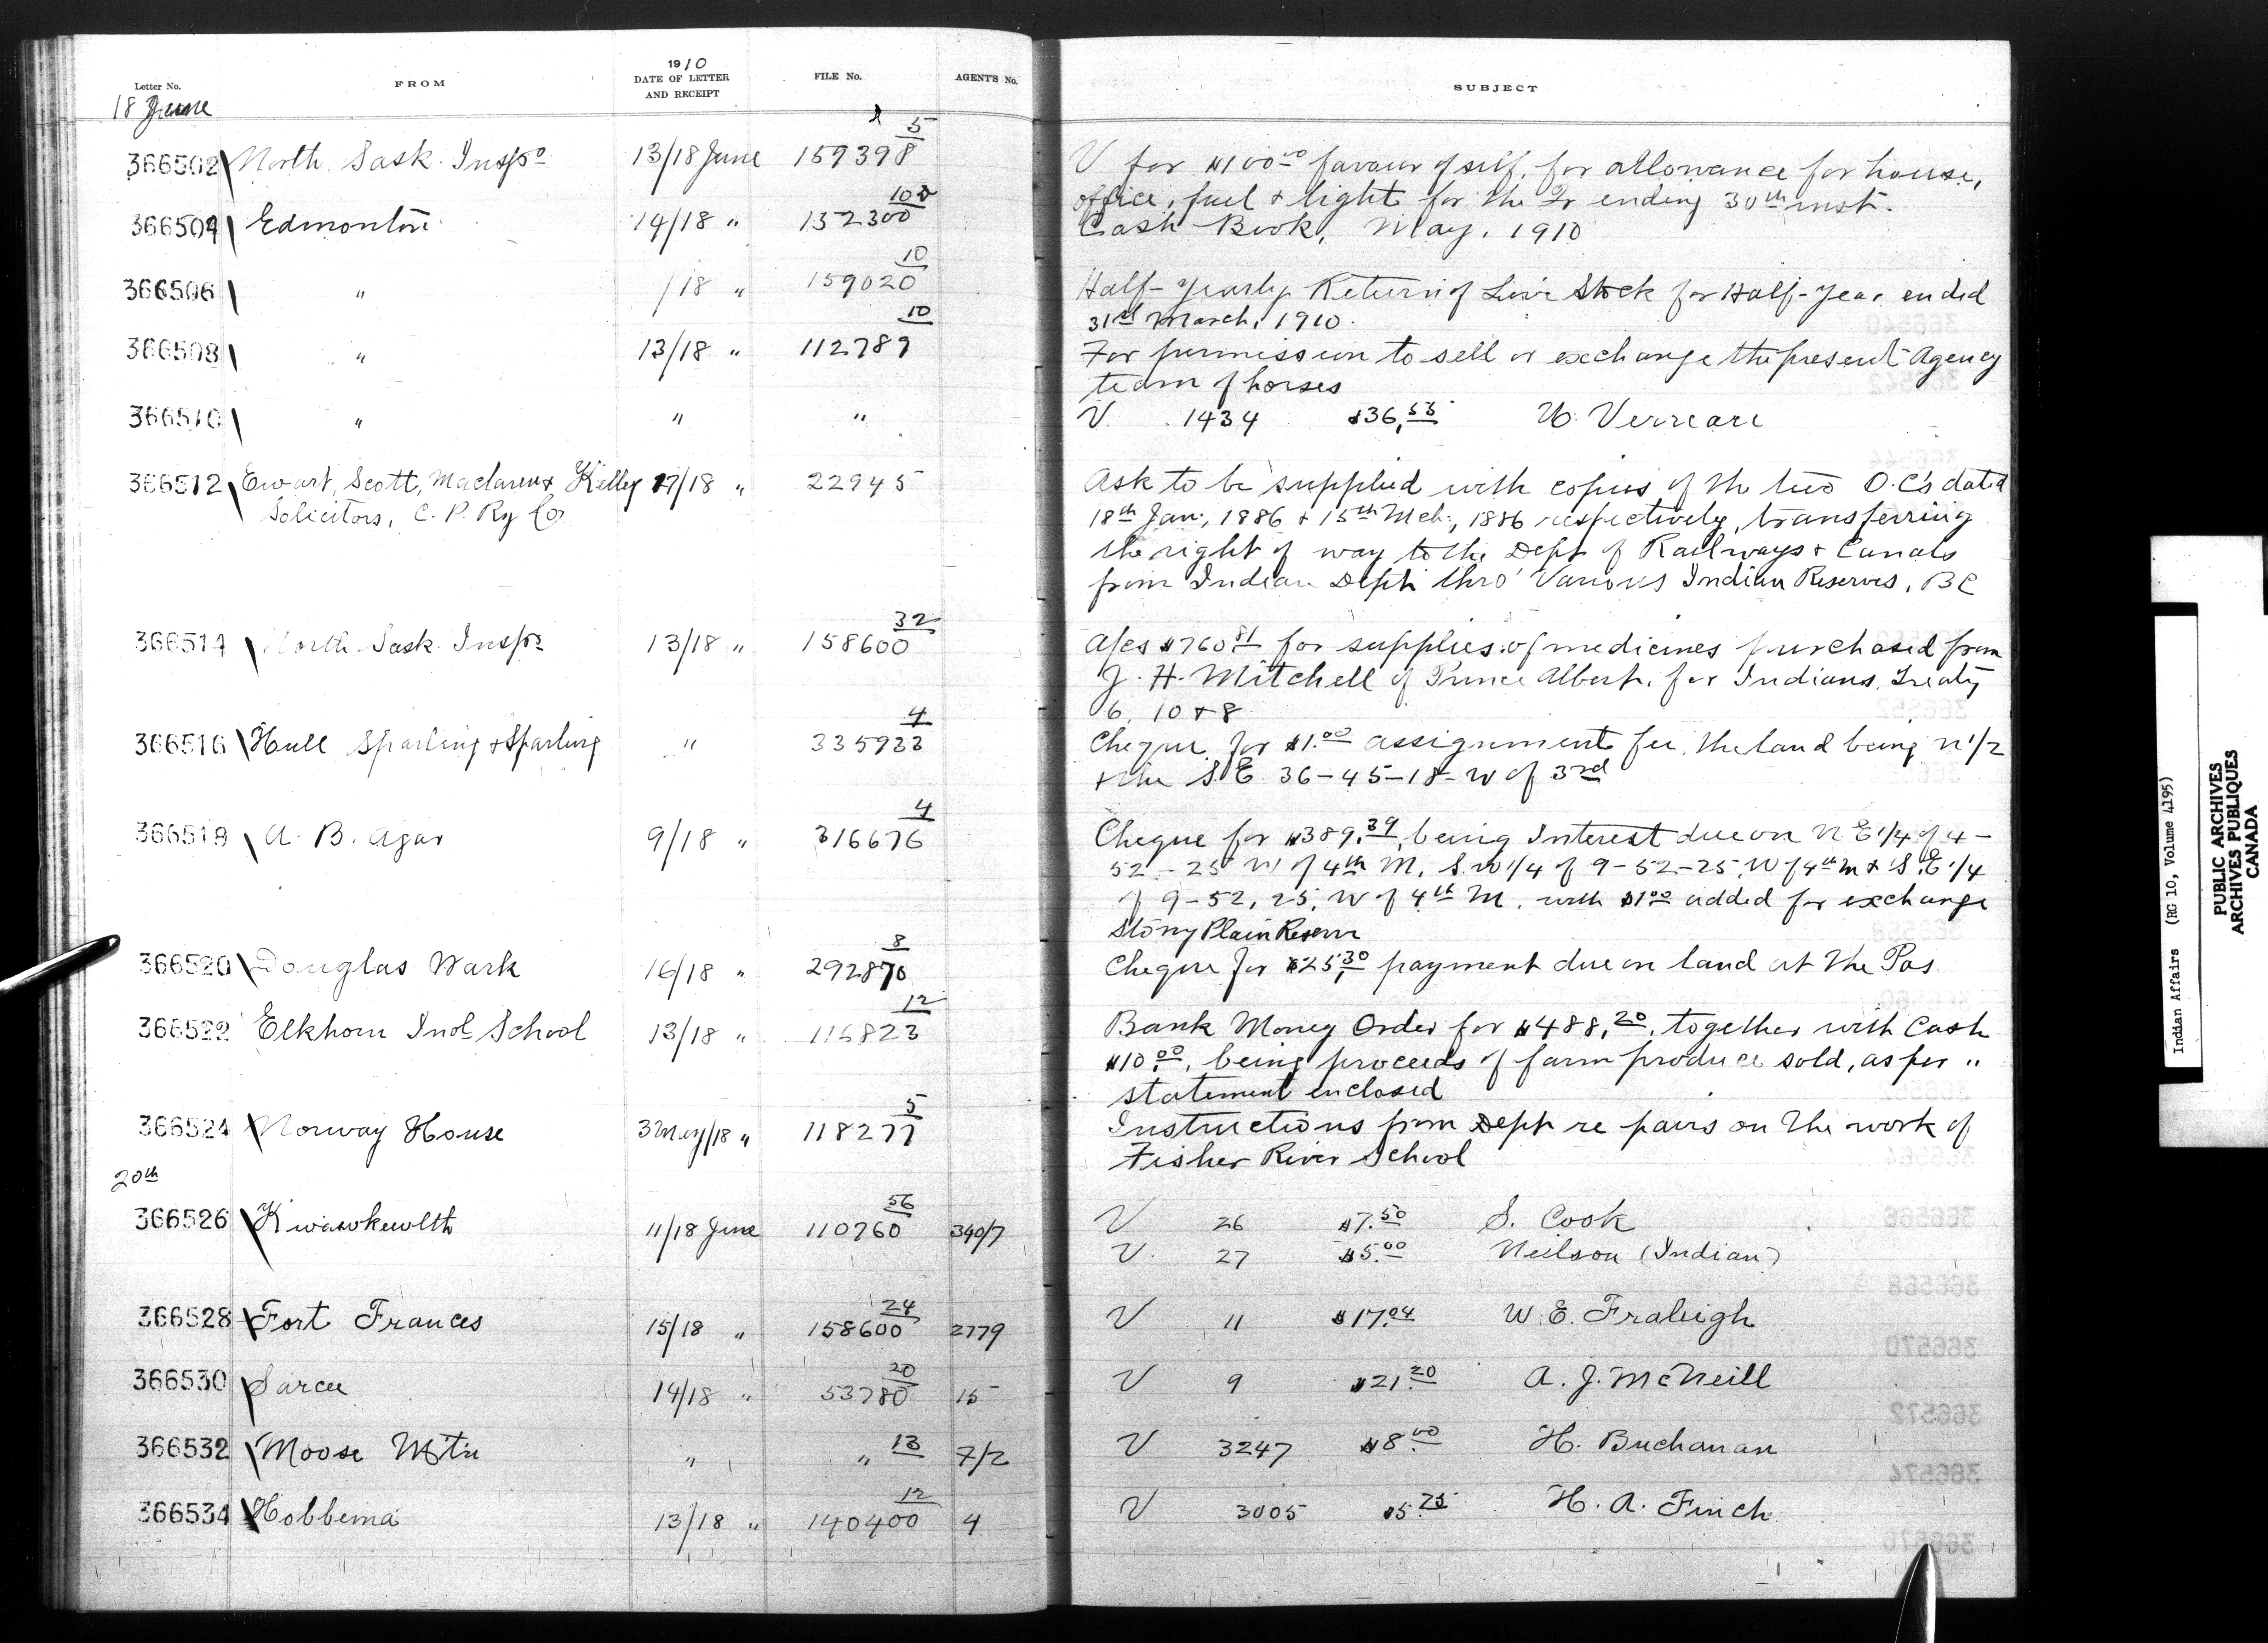 Letter No.
FROM
1910
DATE OF LETTER
AND RECEIPT
FILE No.
AGENT'S No.
SUBJECT
18 June
366502 North Sask. Insp° 13/18 June 159398 5
V for $100.00 favour of self, for allowance for house,
office, fuel & light for the Qr ending 30th inst.
366504 Edmonton 14/18 " 152300 100
Cash Book, May, 1910
366506 " /18 " 159020 10
Half-Yearly Return of Live Stock for Half-Year ended
31st March, 1910.
366508 " 13/18 " 112789 10
For permission to sell or exchange the present Agency
team of horses
366510 " " "
V. 1434 $36.53 U. Verreare
366512 Ewart, Scott, Maclaren & Kelley 17/18 " 22945
Solicitors, C. P. Ry Co
Ask to be supplied with copies of the two O.C's dated
18th Jan., 1886 & 15th Mch., 1886 respectively, transferring
the right of way to the Dept of Railways & Canals
from Indian Dept. thro' Various Indian Reserves, BC
366514 North Sask. Insp° 13/18 " 158600 32
A/cs $760.81 for supplies of medicines purchased from
J. H. Mitchell of Prince Albert, for Indians, Treaty
6, 10 & 8
366516 Hull Sparling & Sparling " 335933 4
Cheque for $1.00 assignment fee, the land being N 1/2
& the S.E. 36-45-18-W of 3rd
366518 A. B. Agar 9/18 " 316676 4
Cheque for $389.39, being Interest due on N E 1/4 of 4-
52-25 W of 4th M, S.W 1/4 of 9-52-25, W of 4th M & S.E 1/4
of 9-52, 25, W of 4th M. with $1.00 added for exchange
Stony Plain Reserve
366520 Douglas Wark 16/18 " 292870 8
Cheque for $25.30 payment due on land at The Pas
366522 Elkhorn Indl School 13/18 " 116823 12
Bank Money Order for $488.20, together with Cash
$10.00, being proceeds of farm produce sold, as per "
statement enclosed
366524 Norway House 3 May/18 " 118277 5
Instructions from Dept re pairs on the work of
Fisher River School
20th
366526 Kwawkewlth 11/18 June 110760 56 340/7
V 26 $7.50 S. Cook
V. 27 $5.00 Neilson (Indian)
366528 Fort Frances 15/18 " 158600 24 2779
V 11 $17.04 W. E. Fraleigh
366530 Sarcee 14/18 " 53780 20 15
V 9 $21.20 A. J. McNeill
366532 Moose Mtn " " 13 7/2
V 3247 $8.00 H. Buchanan
366534 Hobbema 13/18 " 140400 12 4
V 3005 $5.75 H. A. Finch
Indian Affairs (RG 10, Volume 4195)
PUBLIC ARCHIVES
ARCHIVES PUBLIQUES
CANADA